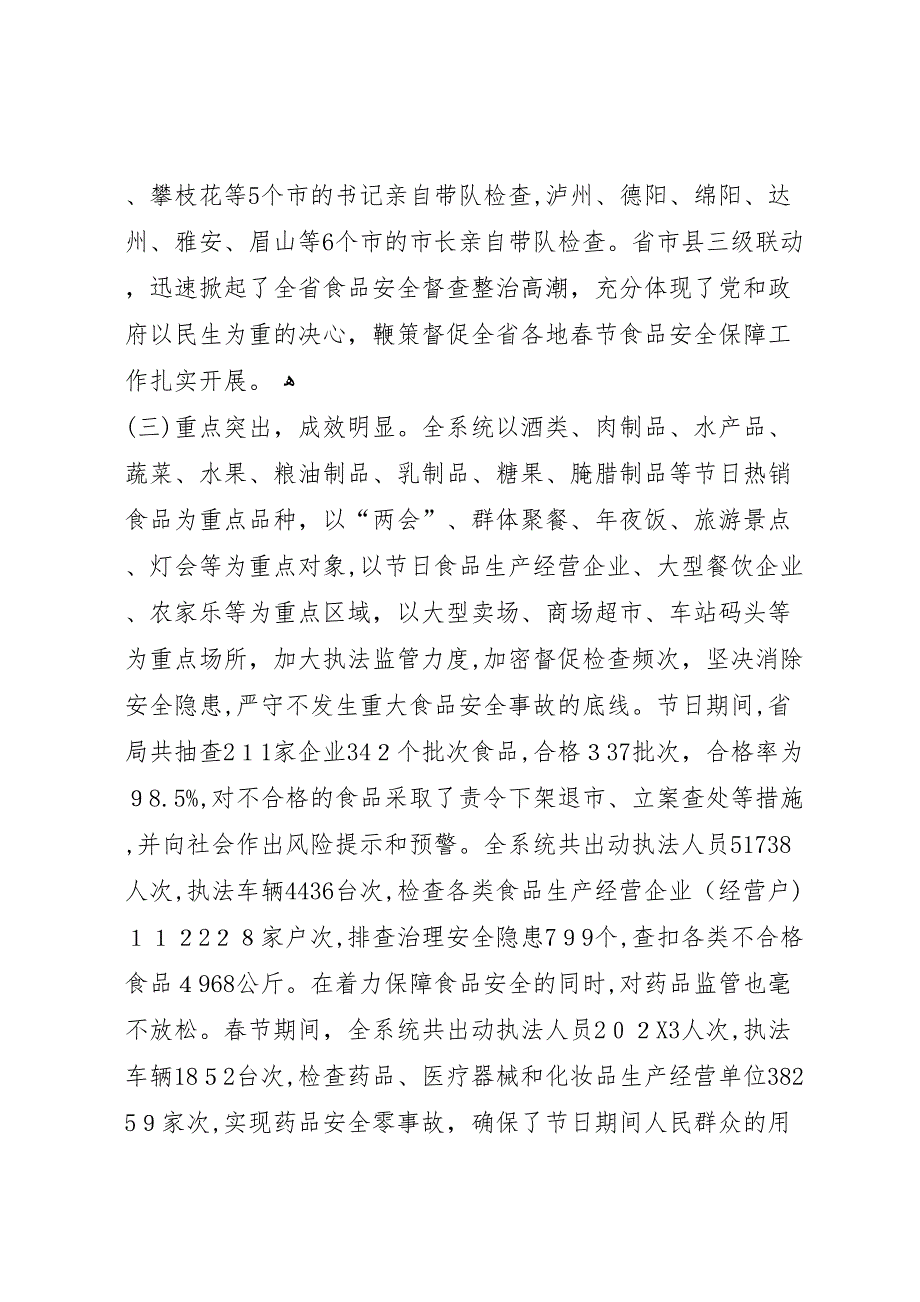 、攀枝花等5个市的书记亲自带队检查,泸州、德阳、绵阳、达
州、雅安、眉山等6个市的市长亲自带队检查。省市县三级联动
，迅速掀起了全省食品安全督查整治高潮，充分体现了党和政
府以民生为重的决心，鞭策督促全省各地春节食品安全保障工
作扎实开展。 ﻫ
(三)重点突出，成效明显。全系统以酒类、肉制品、水产品、
蔬菜、水果、粮油制品、乳制品、糖果、腌腊制品等节日热销
食品为重点品种，以“两会”、群体聚餐、年夜饭、旅游景点
、灯会等为重点对象,以节日食品生产经营企业、大型餐饮企业
、农家乐等为重点区域，以大型卖场、商场超市、车站码头等
为重点场所，加大执法监管力度,加密督促检查频次，坚决消除
安全隐患,严守不发生重大食品安全事故的底线。节日期间,省
局共抽查2１1家企业34２个批次食品,合格３37批次，合格率为
９8.5%,对不合格的食品采取了责令下架退市、立案查处等措施
,并向社会作出风险提示和预警。全系统共出动执法人员51738
人次,执法车辆4436台次,检查各类食品生产经营企业（经营户)
１１２２２８家户次,排查治理安全隐患7９9个,查扣各类不合格
食品４968公斤。在着力保障食品安全的同时,对药品监管也毫
不放松。春节期间，全系统共出动执法人员2０２X3人次,执法
车辆18５2台次,检查药品、医疗器械和化妆品生产经营单位38２
5９家次,实现药品安全零事故，确保了节日期间人民群众的用